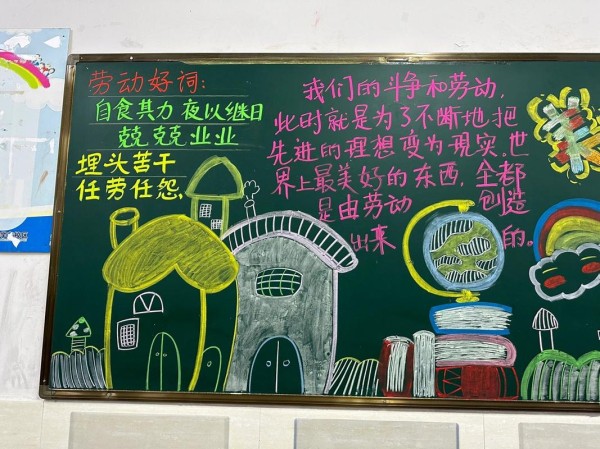 劳动好词:
自食其力 夜以继日
兢兢业业
埋头苦干
任劳任怨
我们的斗争和劳动,
此时就是为了不断地把
先进的理想变为现实,世
界上最美好的东西,全都
是由劳动 创造
出来 的。